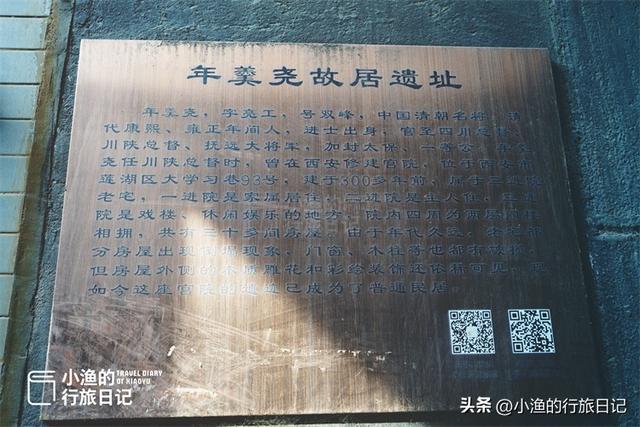 年羹尧故居遗址
年羹尧，字亮工，号双峰，中国清朝名将，清
代康熙、雍正年间人，进士出身，官至四川总督、
川陕总督、抚远大将军，加封太保、一等公，年羹
尧任川陕总督时，曾在西安修建官院，位于西安市
莲湖区大学习巷93号，建于300多年前，属于三进院
老宅，一进院是家属居住，二进院是主人住，三进
院是戏楼、休闲娱乐的地方，院内四周为两层
相拥，共有三十多间房屋，由于年代久远，老宅部
分房屋出现倒塌现象，门窗、木柱等也都有
但房屋外侧的木质雕花和彩绘装饰还依稀可见，
如今这座官院的遗迹已成为了普通民居。
小渔的
行旅日记
TRAVEL DIARY
OF XIAOYU
头条 @小渔的行旅日记